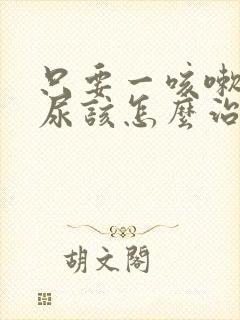 只要一咳嗽
尿該怎麼治
胡文閣